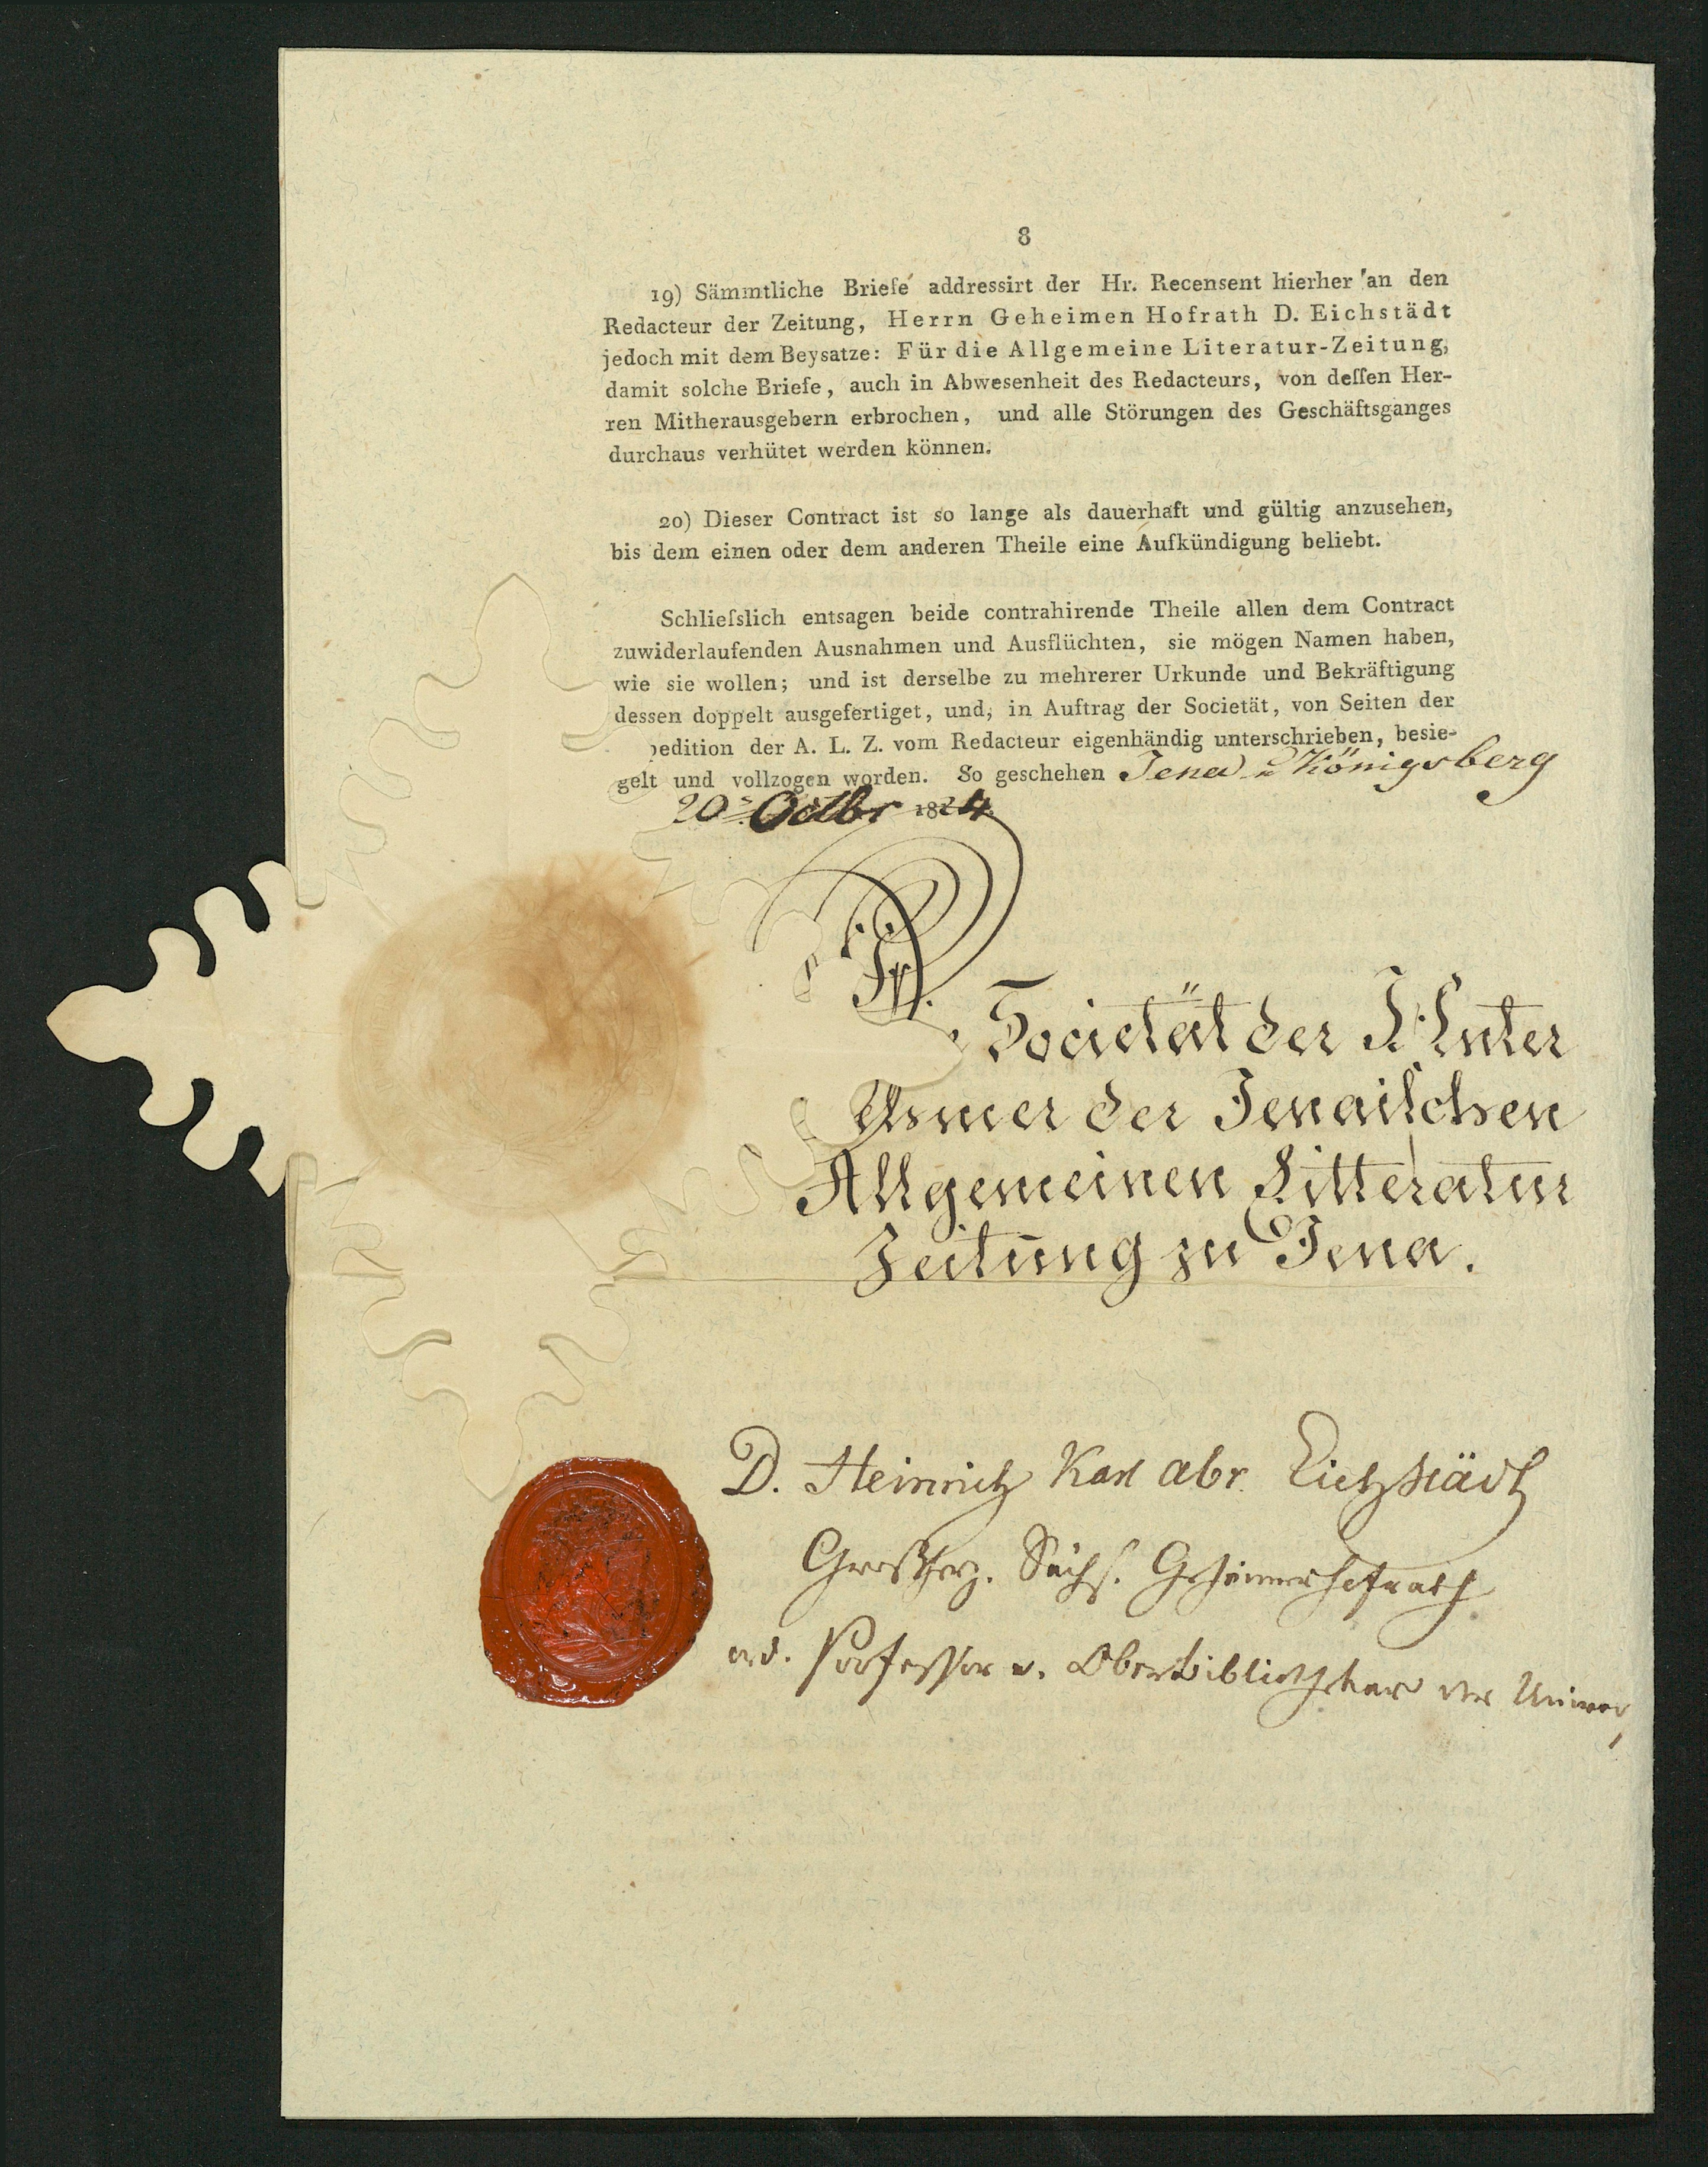 8
19) Sämmtliche Briefe addressirt der Hr. Recensent hierher an den
Redacteur der Zeitung, Herrn Geheimen Hofrath D. Eichstädt
jedoch mit dem Beysatze: Für die Allgemeine Literatur-Zeitung,
damit solche Briefe, auch in Abwesenheit des Redacteurs, von deſſen Her-
ren Mitherausgebern erbrochen, und alle Störungen des Geschäftsganges
durchaus verhütet werden können.
20) Dieser Contract ist so lange als dauerhaft und gültig anzusehen,
bis dem einen oder dem anderen Theile eine Aufkündigung beliebt.
Schlieſslich entsagen beide contrahirende Theile allen dem Contract
zuwiderlaufenden Ausnahmen und Ausflüchten, sie mögen Namen haben,
wie sie wollen; und ist derselbe zu mehrerer Urkunde und Bekräftigung
dessen doppelt ausgefertiget, und, in Auftrag der Societät, von Seiten der
pedition der A. L. Z. vom Redacteur eigenhändig unterschrieben, besie-
gelt und vollzogen worden. So geschehen Jena u Königsberg
20. Octbr 1824.
Societät der Unter
nehmer der Jenaiſchen
Allgemeinen Litteratur
Zeitung zu Jena.
D. Heinrich Karl Abr. Eichstädt
Großherz. Sächs. Geheimerhofrath
ord. Professor u. Oberbibliothekar der Univer